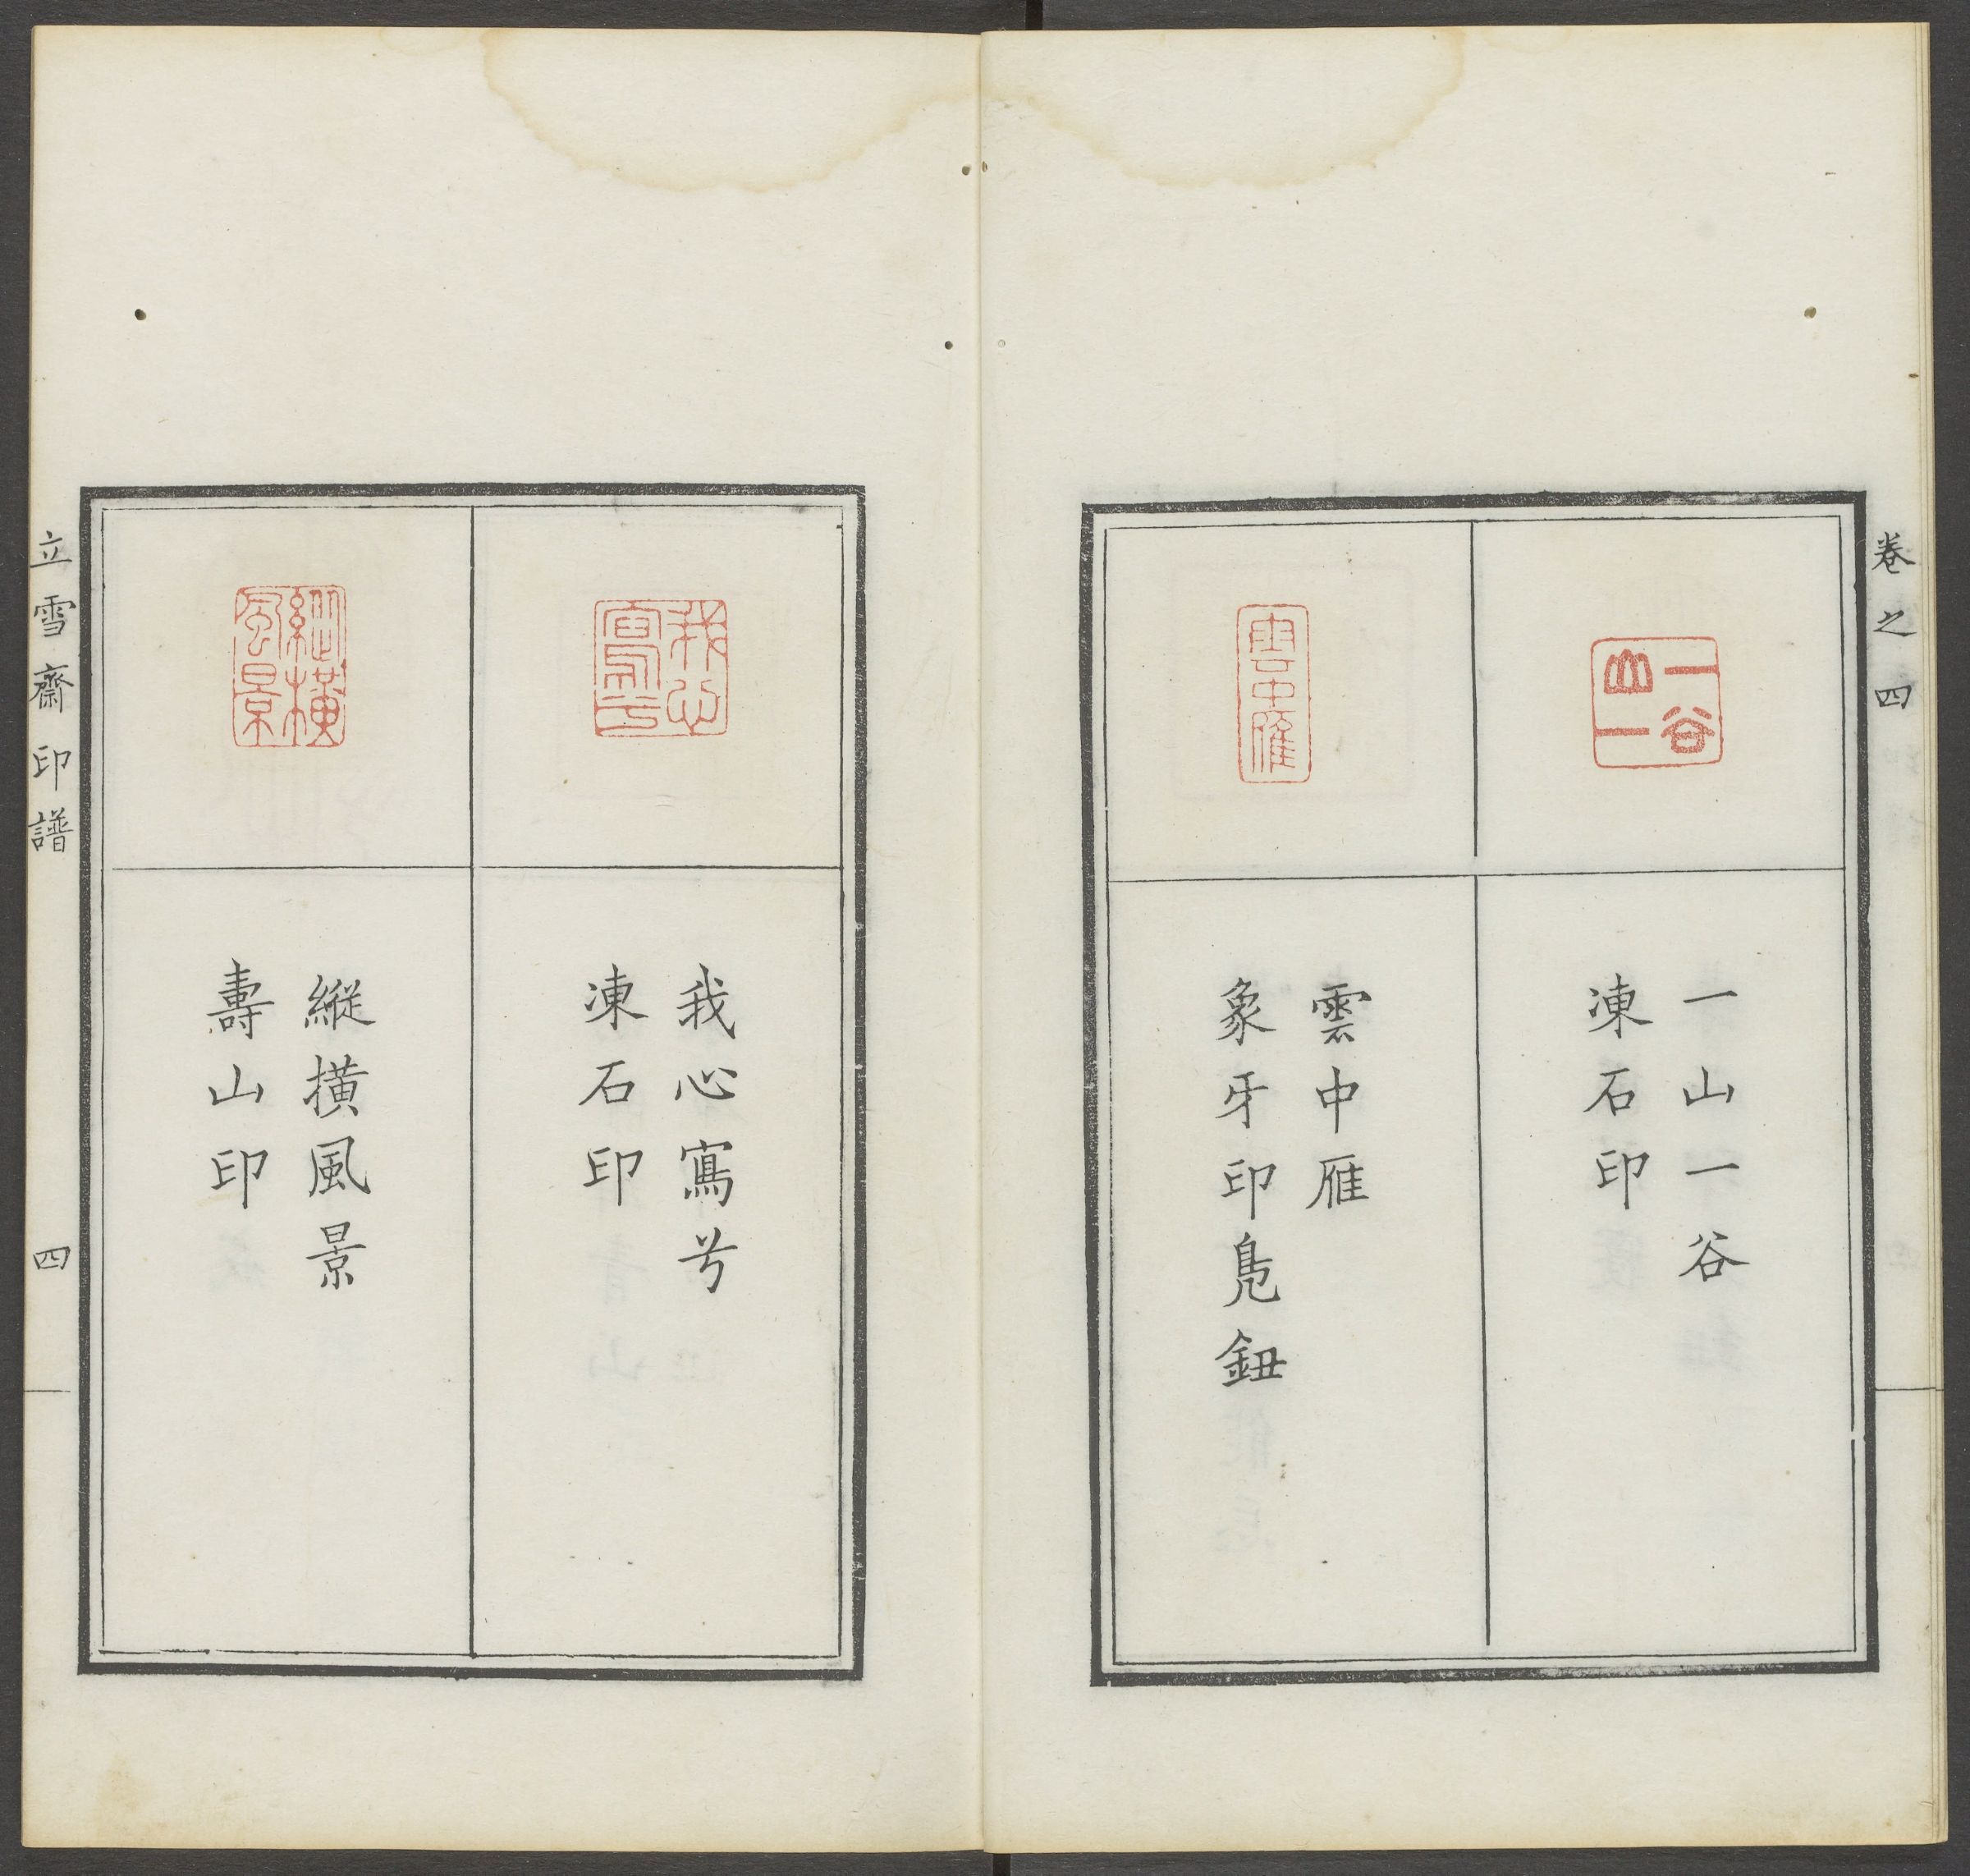 卷之四
一山一谷
一山一谷
凍石印
雲中雁
雲中雁
象牙印鳧鈕
我心寫兮
我心寫兮
凍石印
縱橫風景
縱撗風景
壽山印
立雪齋印譜
四